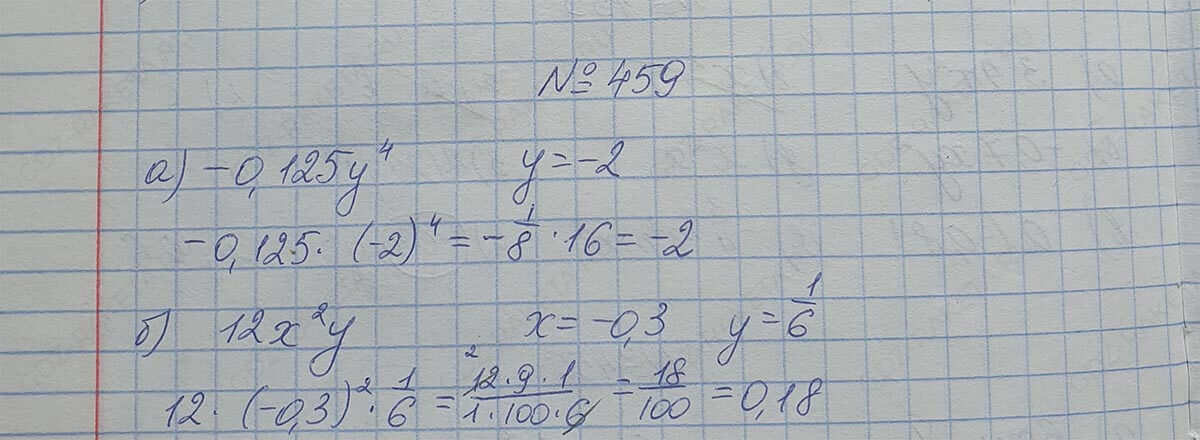 № 459
а) -0,125y⁴ y = -2
-0,125 · (-2)⁴ = -1/8 · 16 = -2
б) 12x²y x = -0,3 y = 1/6
12 · (-0,3)² · 1/6 = 12² · 9 · 1 / 1 · 100 · 6 = 18/100 = 0,18